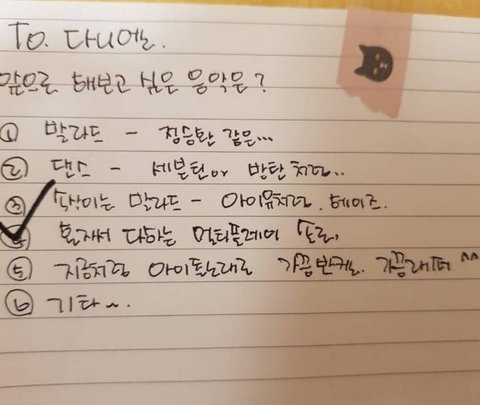 TO. 다니엘.
앞으로 해보고 싶은 음악은?
① 발라드 - 정승환 같은...
② 댄스 - 세븐틴or 방탄처럼..
③ 속삭이는 발라드 - 아이유처럼. 헤이즈.
④ 혼자서 다하는 멀티플레이 솔로.
⑤ 지금처럼 아이돌노래로 가끔보컬. 가끔래퍼 ^^
⑥ 기타~.